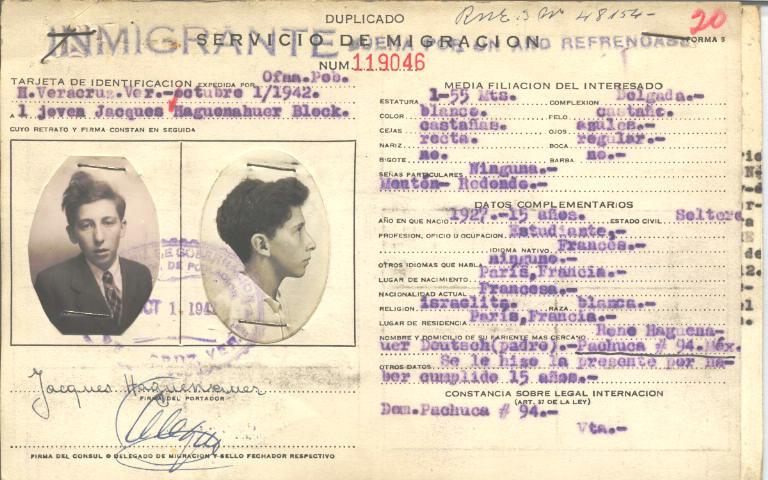 DUPLICADO
R.N.E. 3 Nº 48154-
20
INMIGRANTE BUENA POR UN AÑO REFRENDASE
SERVICIO DE MIGRACION
FORMA 5
NUM 119046
TARJETA DE IDENTIFICACION EXPEDIDA POR Ofna.Pob.
H.Veracruz.Ver.-octubre 1/1942.
A l joven Jacques Haguenahuer Block.
CUYO RETRATO Y FIRMA CONSTAN EN SEGUIDA
OCT 1 . 194
Jacques Haguenauer
FIRMA DEL PORTADOR
FIRMA DEL CONSUL O DELEGADO DE MIGRACION Y SELLO FECHADOR RESPECTIVO
MEDIA FILIACION DEL INTERESADO
ESTATURA 1-55 Mts. COMPLEXION Delgada.-
COLOR blanco. PELO castaño.
CEJAS castañas. OJOS azules.-
NARIZ recta. BOCA regular.-
BIGOTE no. BARBA no.-
SEÑAS PARTICULARES Ninguna.-
Mentón- Redondo.-
DATOS COMPLEMENTARIOS
AÑO EN QUE NACIO 1927.-15 años. ESTADO CIVIL Soltero
PROFESION, OFICIO U OCUPACION Estudiante,-
IDIOMA NATIVO Francés.
OTROS IDIOMAS QUE HABLA ninguno.-
LUGAR DE NACIMIENTO París,Francia.-
NACIONALIDAD ACTUAL Francesa.-
RELIGION israelita. RAZA blanca.-
LUGAR DE RESIDENCIA París,Francia.-
NOMBRE Y DOMICILIO DE SU PARIENTE MAS CERCANO René Haguena-
uer Deutsch(padre).-Pachuca # 94.Méx.
OTROS DATOS Se le hizo la presente por ha-
ber cumplido 15 años.-
CONSTANCIA SOBRE LEGAL INTERNACION
(ART. 37 DE LA LEY)
Dom.Pachuca # 94.-
Vta.-